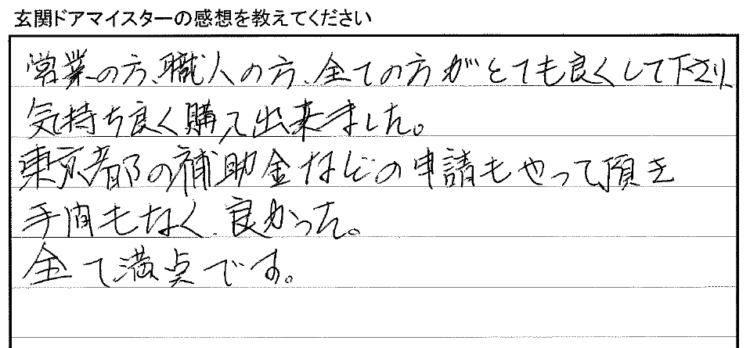 玄関ドアマイスターの感想を教えてください
営業の方、職人の方、全ての方がとても良くして下さり、
気持ち良く購入出来ました。
東京都の補助金などの申請もやって頂き
手間もなく、良かった。
全て満点です。